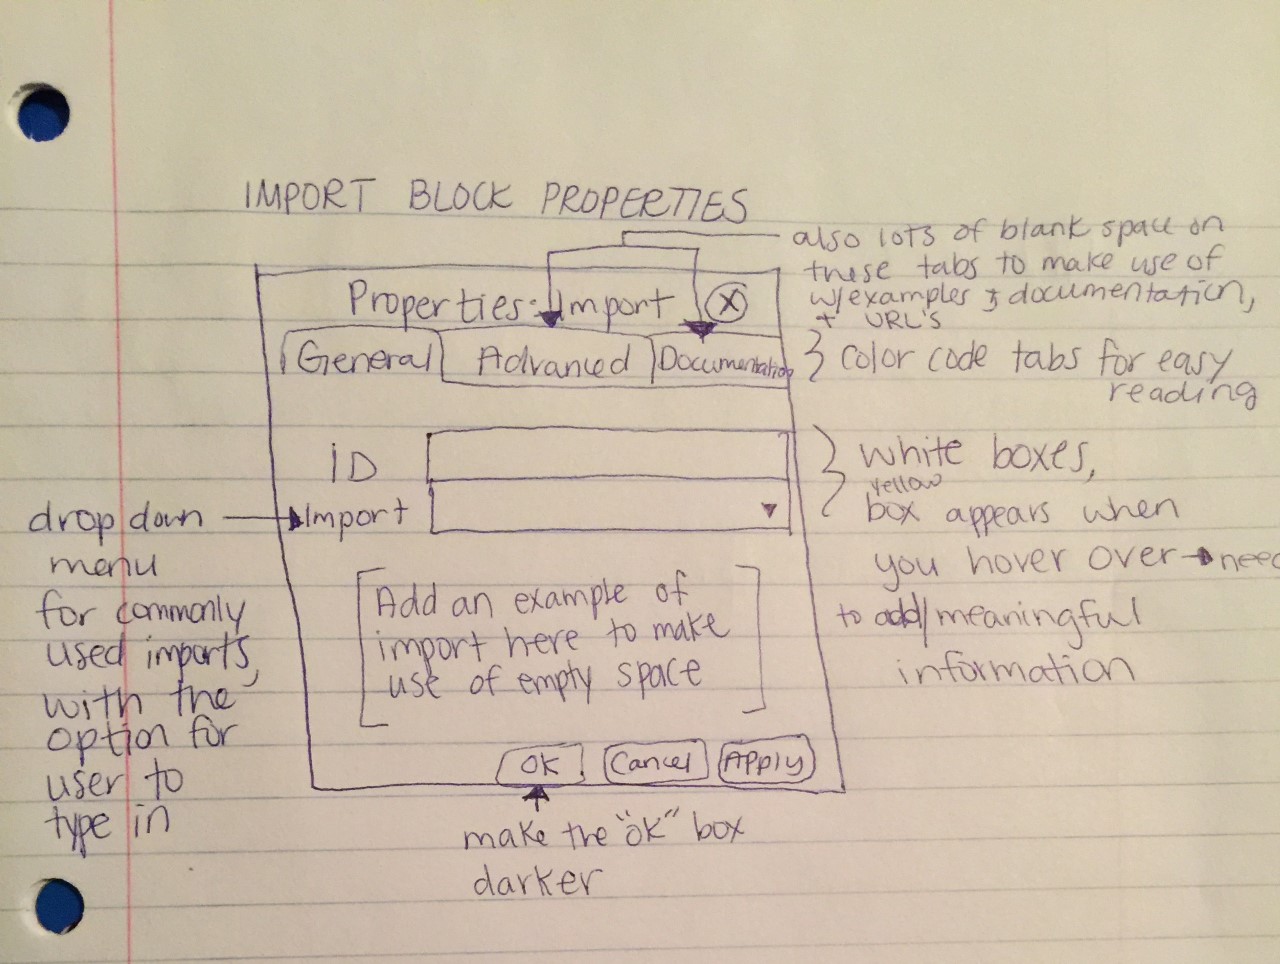 IMPORT BLOCK PROPERTIES
also lots of blank space on
these tabs to make use of
w/examples & documentation,
+ URL's
Properties: Import X
General Advanced Documentation
color code tabs for easy
reading
ID
Import
white boxes,
yellow
box appears when
you hover over → need
to add/meaningful
information
drop down
menu
for commonly
used imports,
with the
option for
user to
type in
Add an example of
import here to make
use of empty space
OK Cancel Apply
make the "OK" box
darker